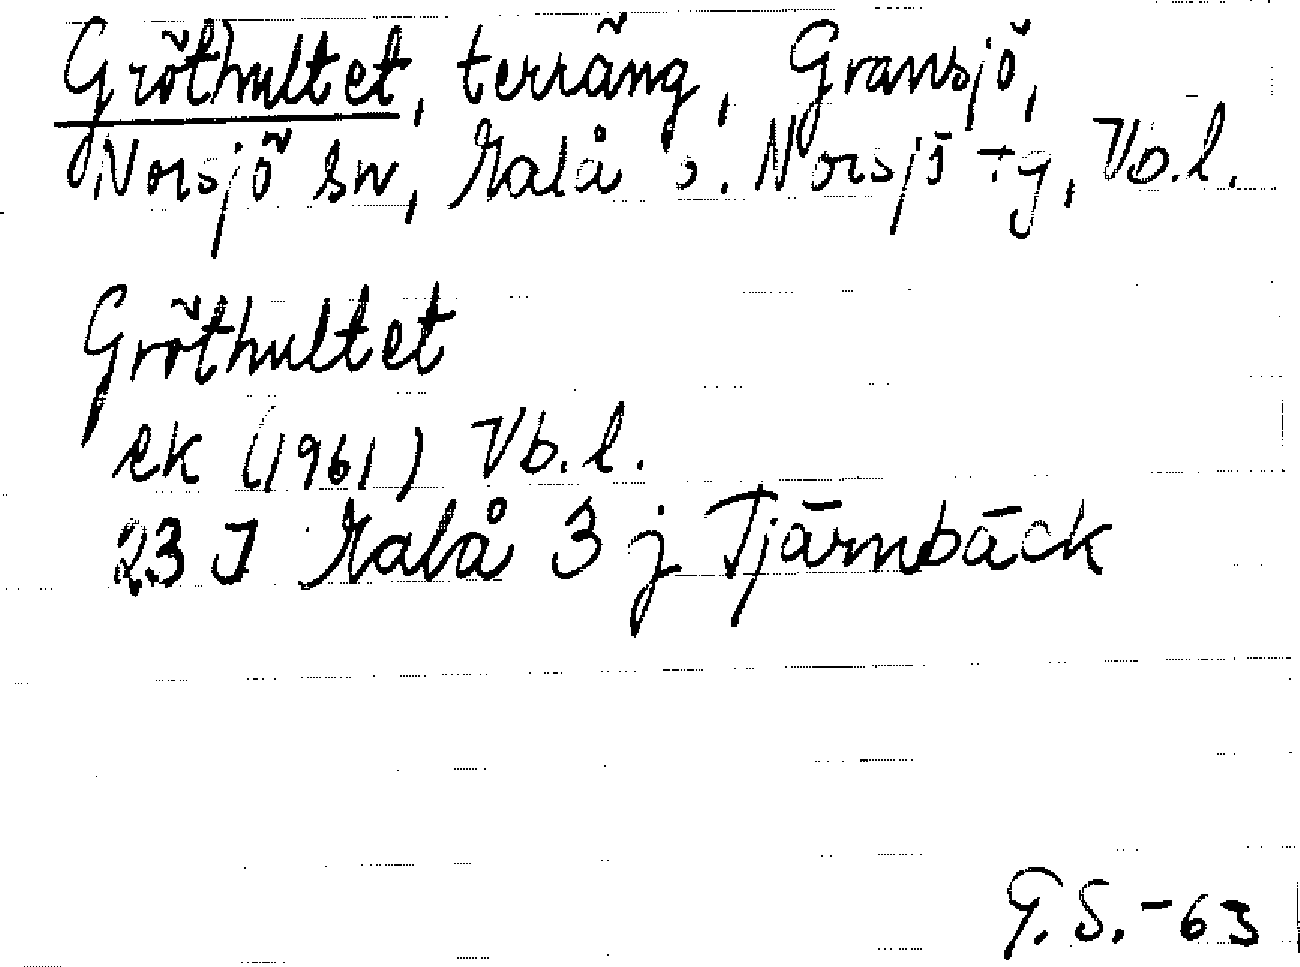 Gröthultet, terräng, Gransjö,
Norsjö sn, Malå o. Norsjö tg, Vb.l.
Gröthultet
ek (1961) Vb.l.
23 J Malå 3 j Tjärnbäck
G.S.-63